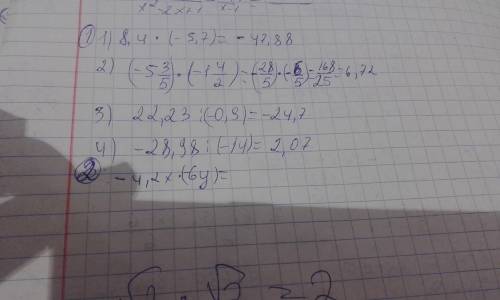 x²-2x+1 x-1
① 1) 8,4 · (-5,7) = - 47,88
2) (-5 3/5) · (-1 4/2) = (-28/5) · (-6/5) = 168/25 = 6,72
3) 22,23 : (-0,9) = -24,7
4) -28,98 : (-14) = 2,07
② -4,2x · (-6y) =